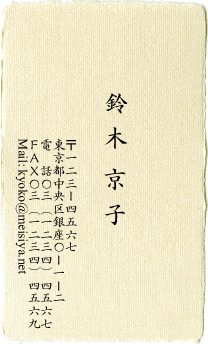 鈴木京子
〒一二三ー四五六七
東京都中央区銀座〇ー一ー二
電話〇三（一二三四）四五六七
FAX〇三（一二三四）四五六九
Mail: kyoko@meisiya.net